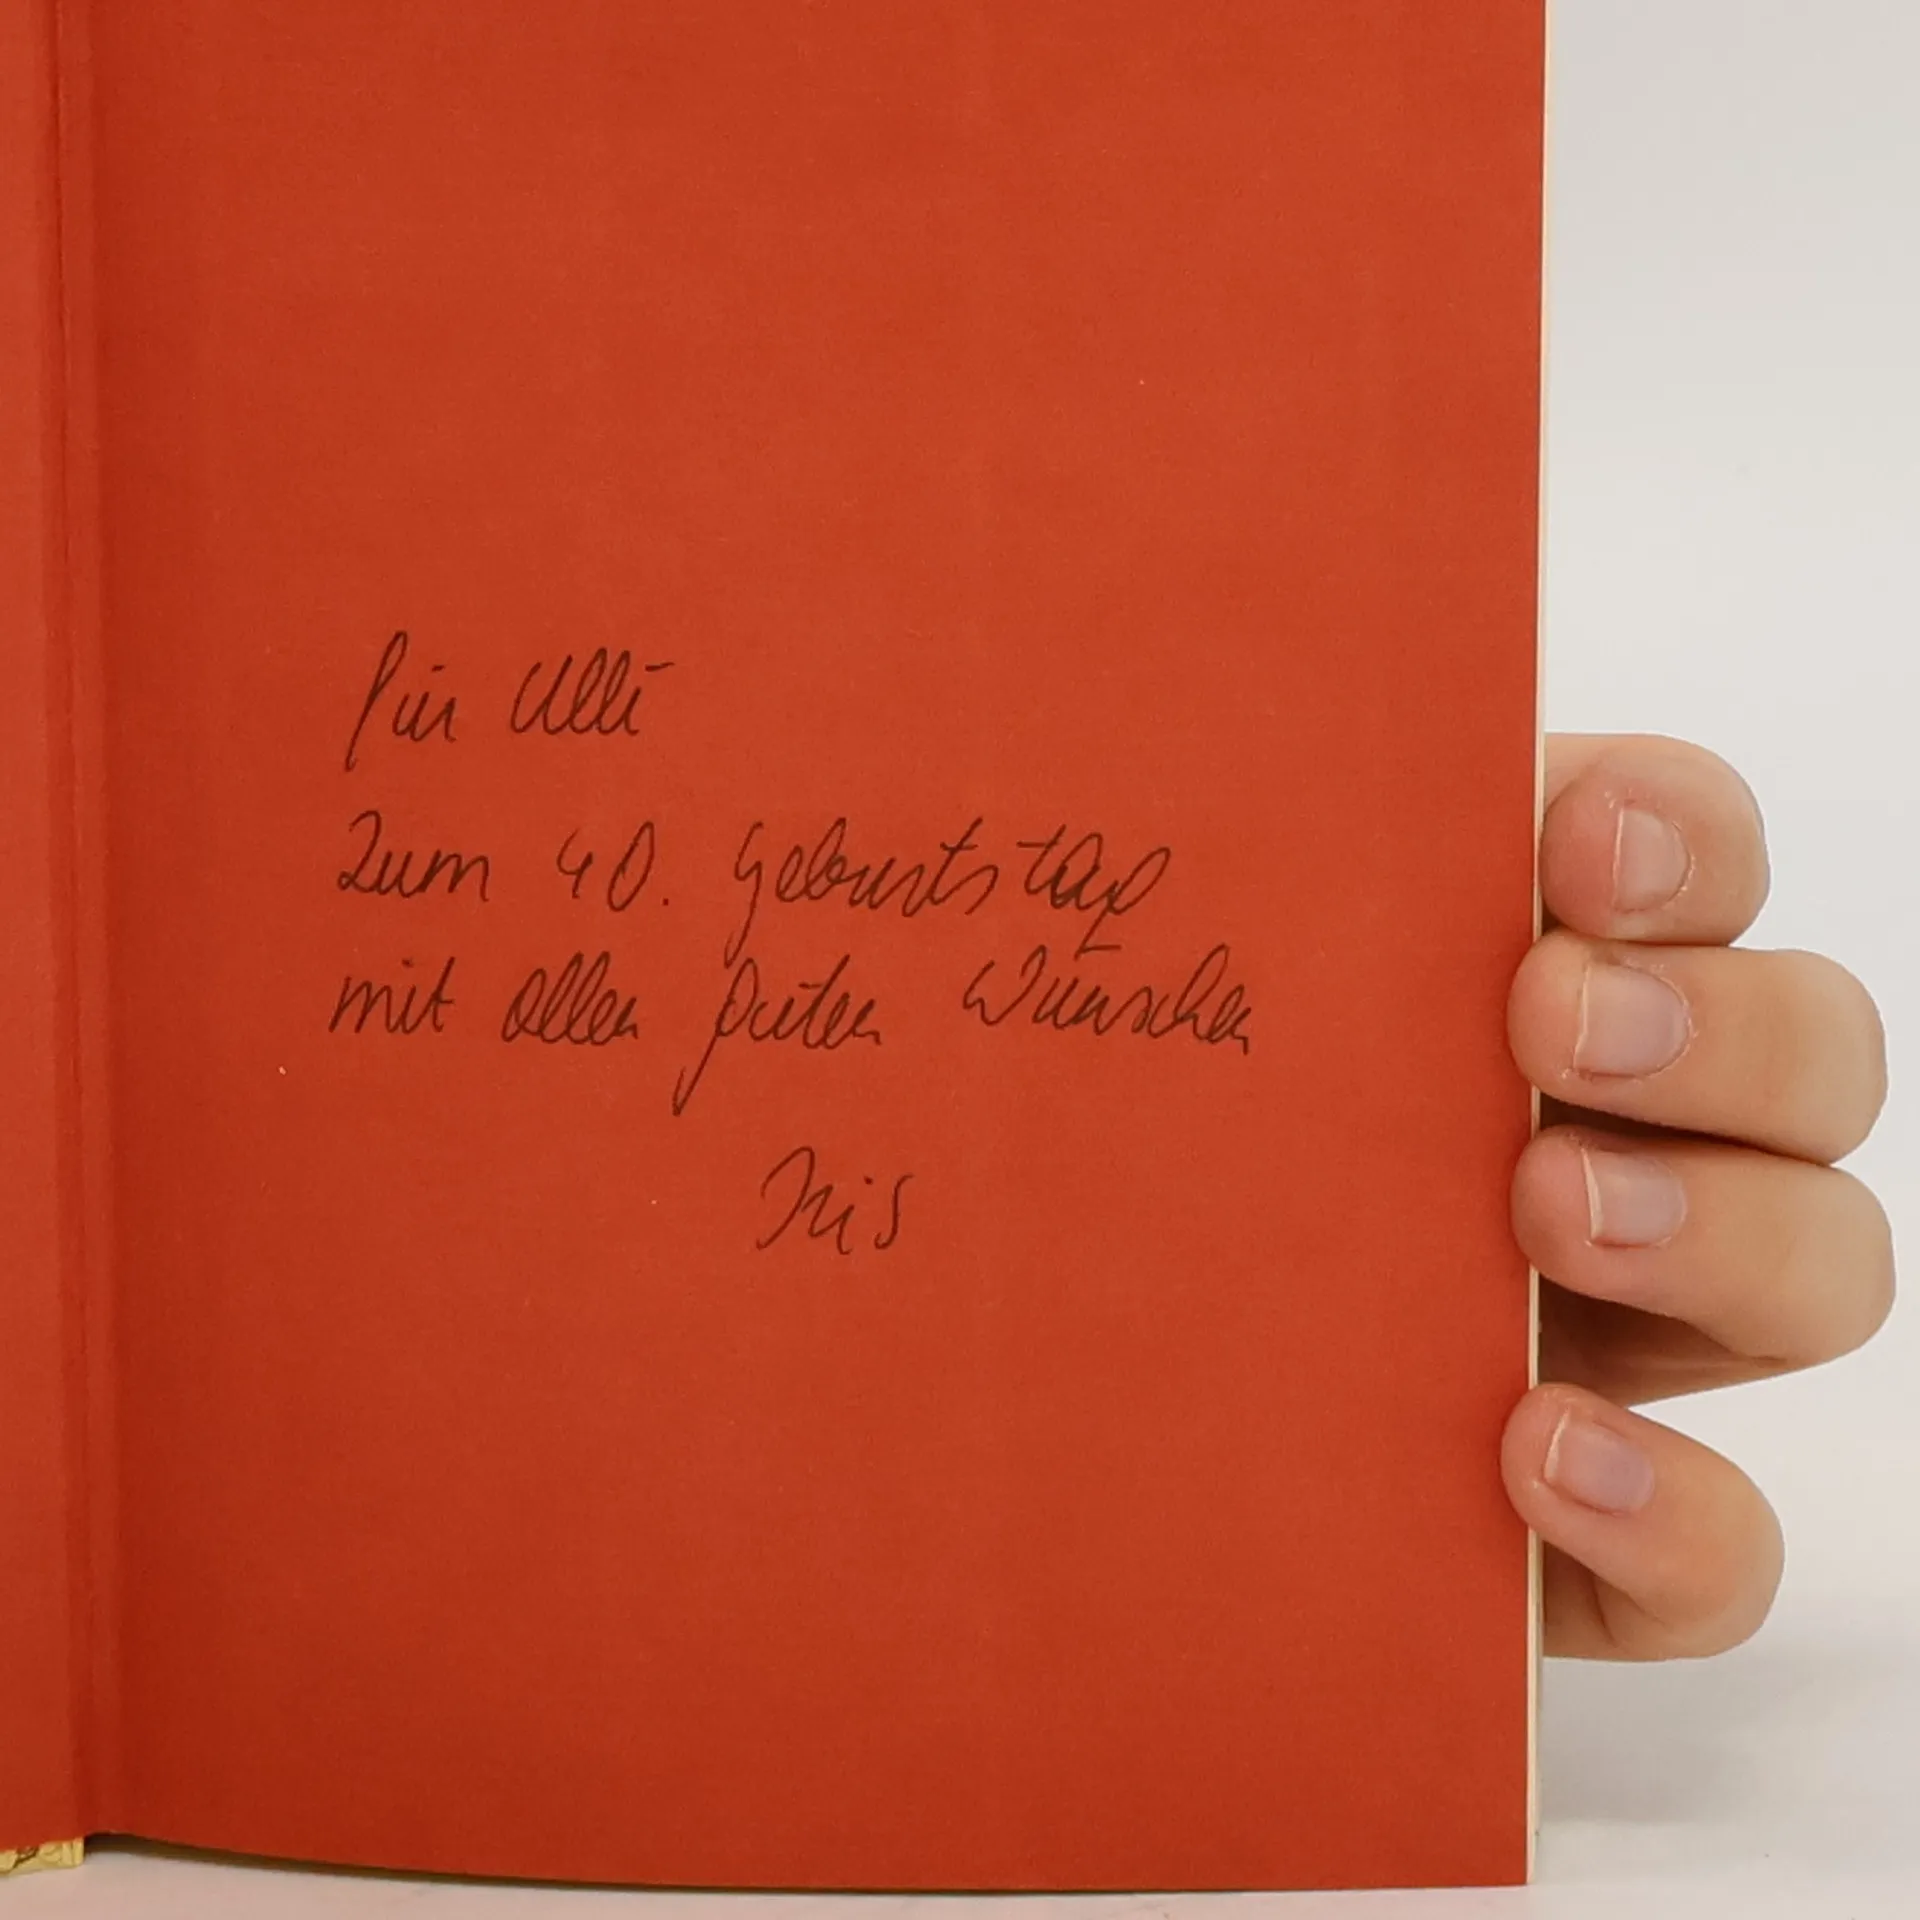 für Ulli
Zum 40. Geburtstag
mit allen guten Wünschen
Iris